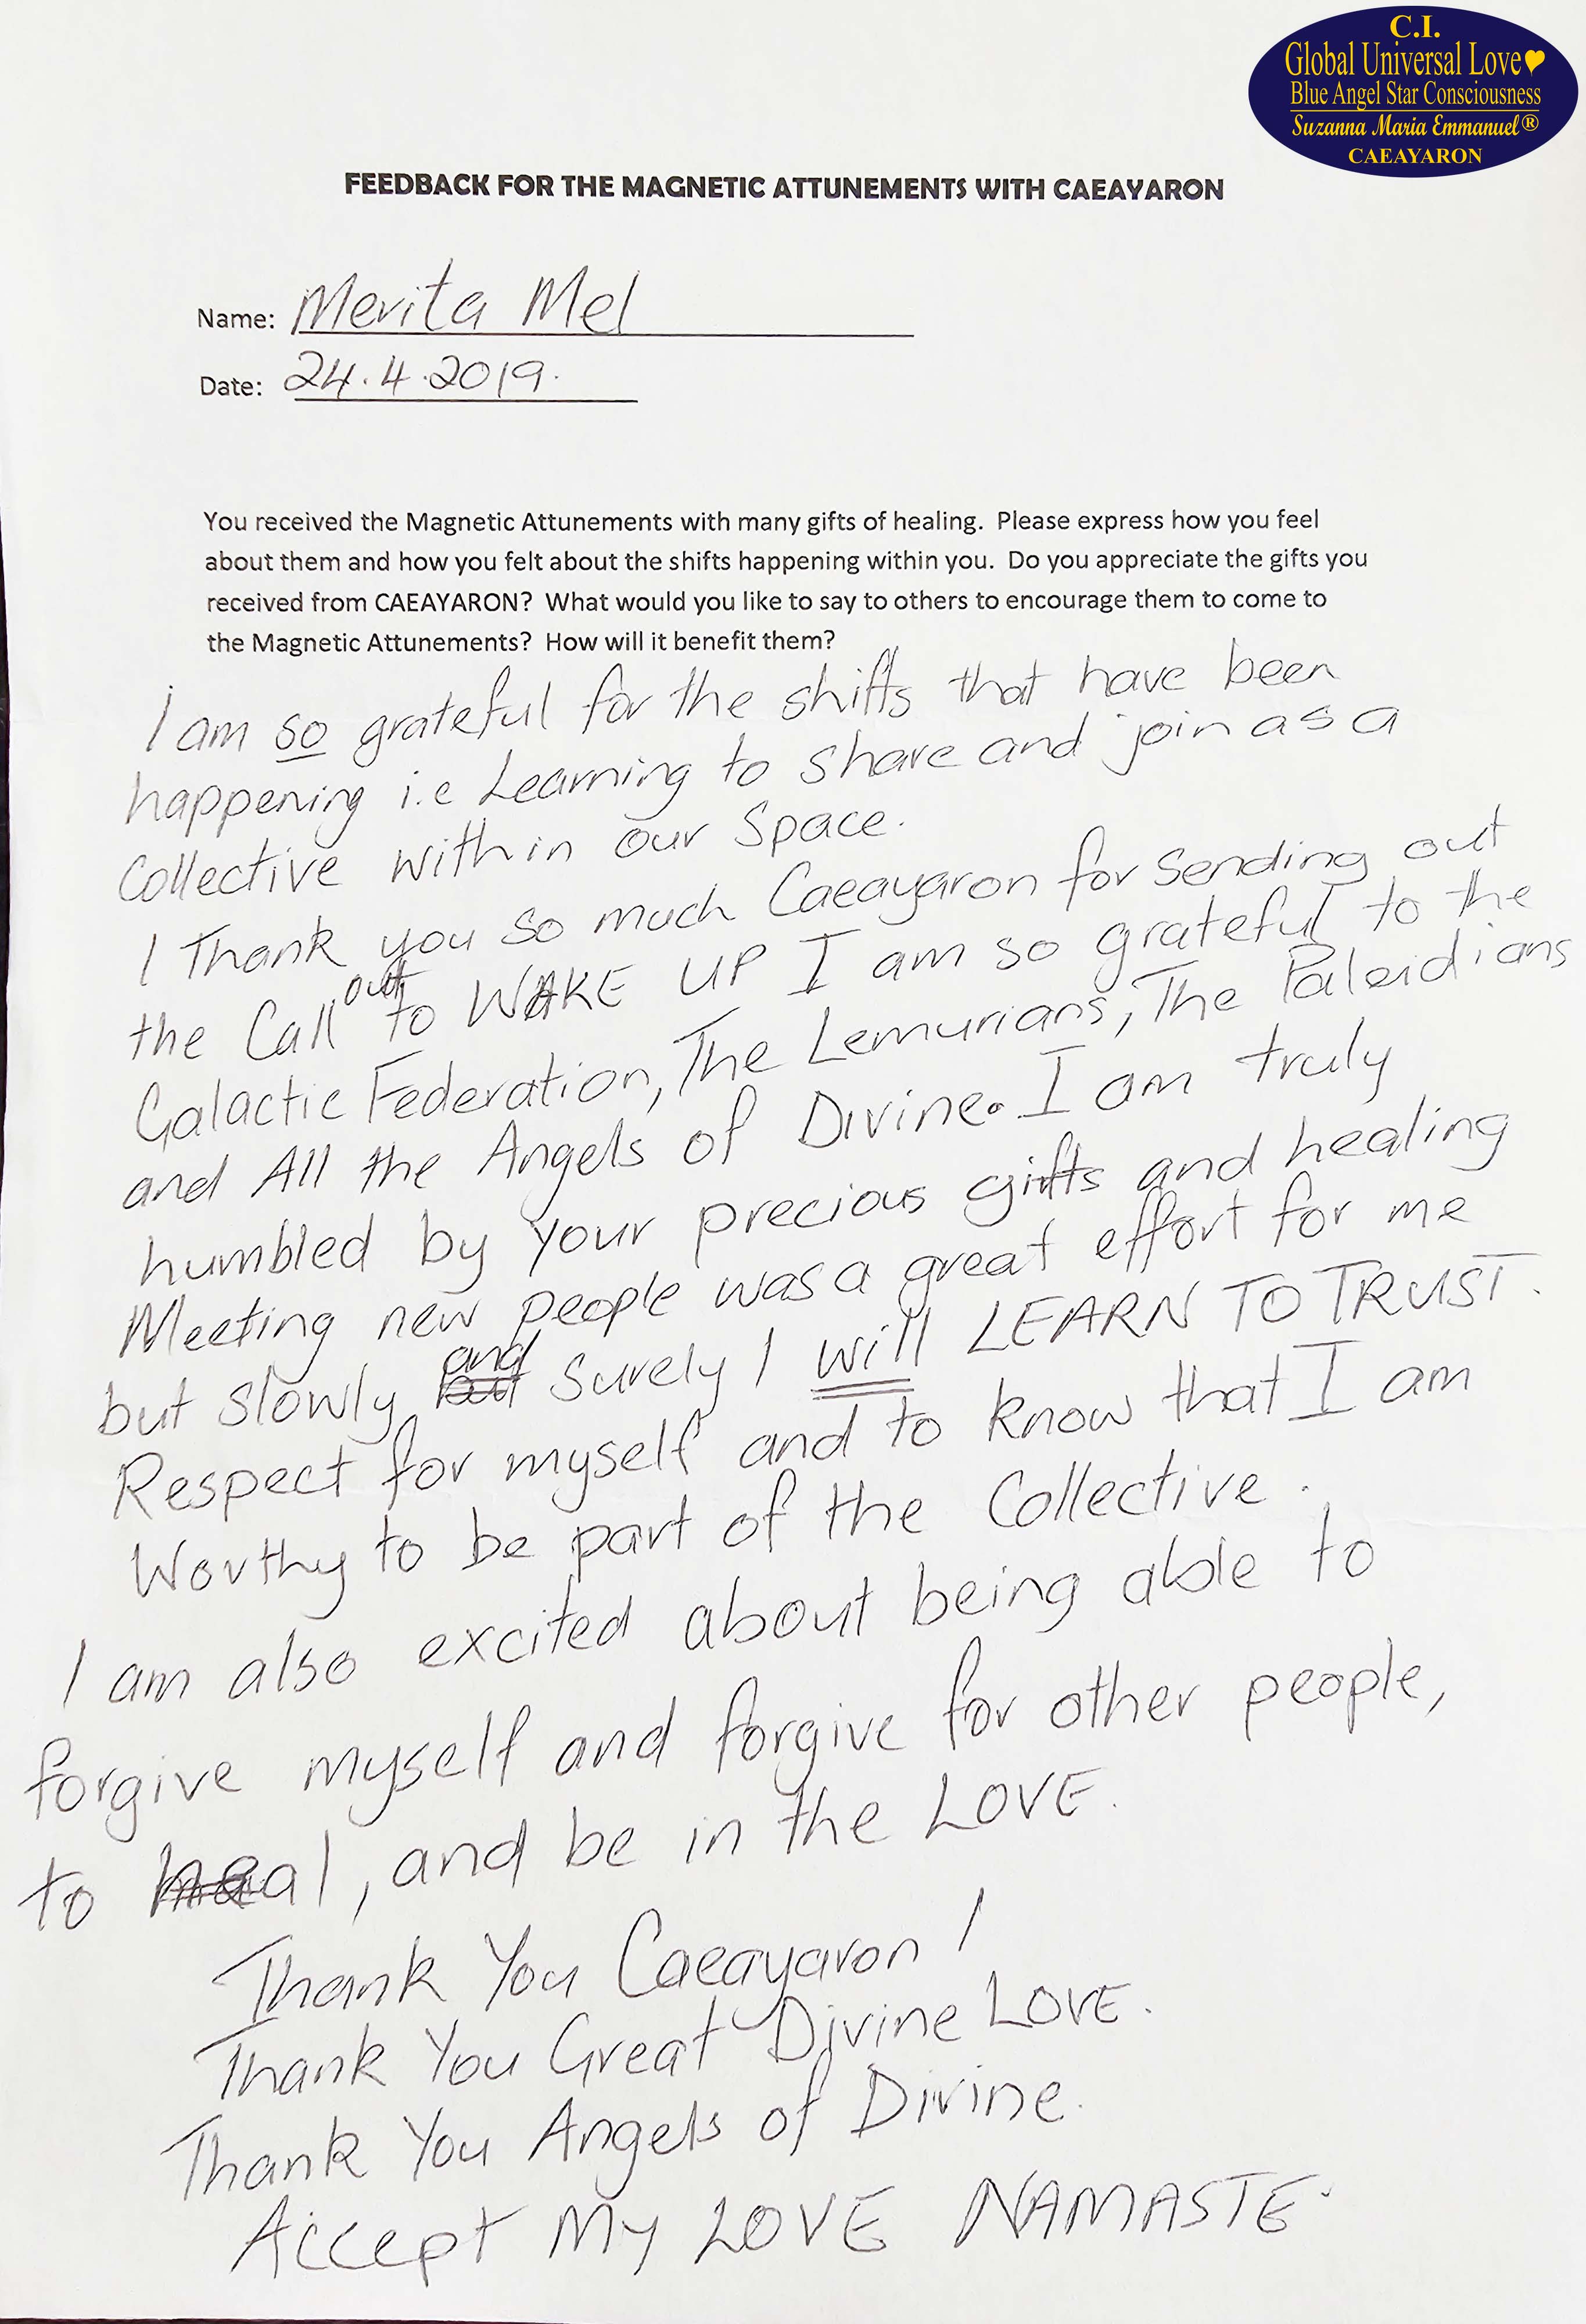 C.I.
Global Universal Love
Blue Angel Star Consciousness
Suzanna Maria Emmanuel®
CAEAYARON
FEEDBACK FOR THE MAGNETIC ATTUNEMENTS WITH CAEAYARON
Name: Merita Mel
Date: 24.4.2019.
You received the Magnetic Attunements with many gifts of healing. Please express how you feel
about them and how you felt about the shifts happening within you. Do you appreciate the gifts you
received from CAEAYARON? What would you like to say to others to encourage them to come to
the Magnetic Attunements? How will it benefit them?
I am so grateful for the shifts that have been
happening i.e Learning to share and join as a
Collective within our Space.
I Thank you so much Caeayaron for sending out
the Call out to WAKE UP I am so grateful to the
Galactic Federation, The Lemurians, The Paleidians
and All the Angels of Divine. I am truly
humbled by your precious gifts and healing
Meeting new people was a great effort for me
but slowly and surely I will LEARN TO TRUST.
Respect for myself and to know that I am
Worthy to be part of the Collective.
I am also excited about being able to
forgive myself and forgive for other people,
to heal, and be in the LOVE.
Thank You Caeayaron!
Thank You Great Divine LOVE.
Thank You Angels of Divine.
Accept My LOVE NAMASTE.